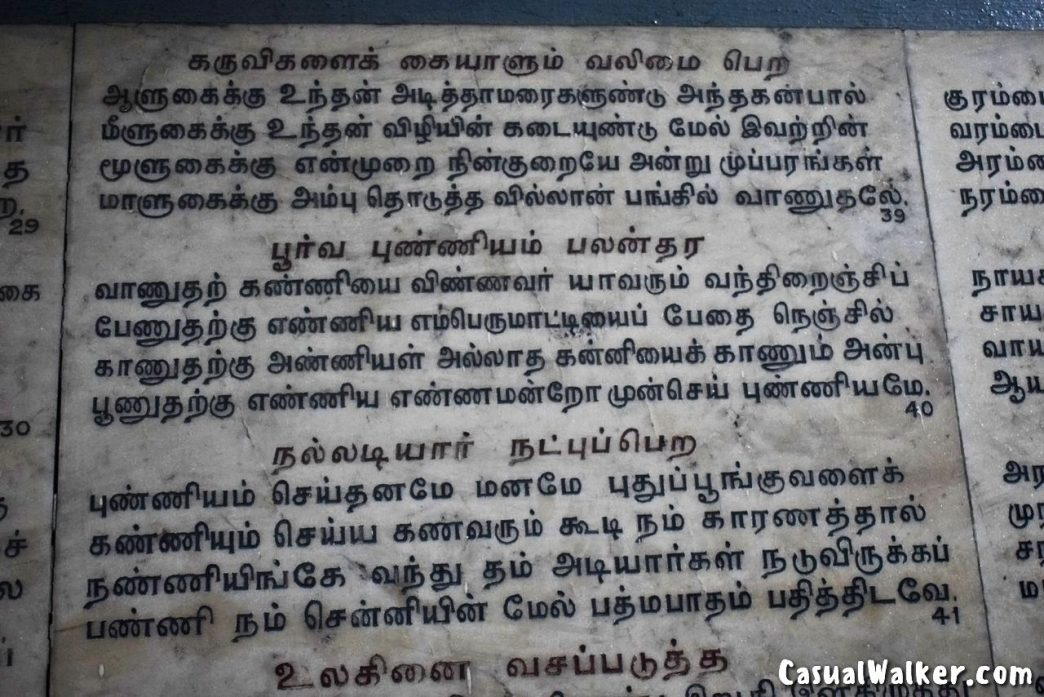 ர்
த
ற, 29
கை
30
ச்
ல
கருவிகளைக் கையாளும் வலிமை பெற
ஆளுகைக்கு உந்தன் அடித்தாமரைகளுண்டு அந்தகன்பால்
மீளுகைக்கு உந்தன் விழியின் கடையுண்டு மேல் இவற்றின்
மூளுகைக்கு என்முறை நின்குறையே அன்று முப்பரங்கள்
மாளுகைக்கு அம்பு தொடுத்த வில்லான் பங்கில் வாணுதலே. 39
பூர்வ புண்ணியம் பலன்தர
வாணுதற் கண்ணியை விண்ணவர் யாவரும் வந்திறைஞ்சிப்
பேணுதற்கு எண்ணிய எம்பெருமாட்டியைப் பேதை நெஞ்சில்
காணுதற்கு அண்ணியள் அல்லாத கன்னியைக் காணும் அன்பு
பூணுதற்கு எண்ணிய எண்ணமன்றோ முன்செய் புண்ணியமே. 40
நல்லடியார் நட்புப்பெற
புண்ணியம் செய்தனமே மனமே புதுப்பூங்குவளைக்
கண்ணியும் செய்ய கணவரும் கூடி நம் காரணத்தால்
நண்ணியிங்கே வந்து தம் அடியார்கள் நடுவிருக்கப்
பண்ணி நம் சென்னியின் மேல் பத்மபாதம் பதித்திடவே. 41
உலகினை வசப்படுத்த
குரம்பை
வரம்பை
அரம்பை
நரம்பை
நாயகி
சாய
வாய
ஆய
அர
முர
CasualWalker.com